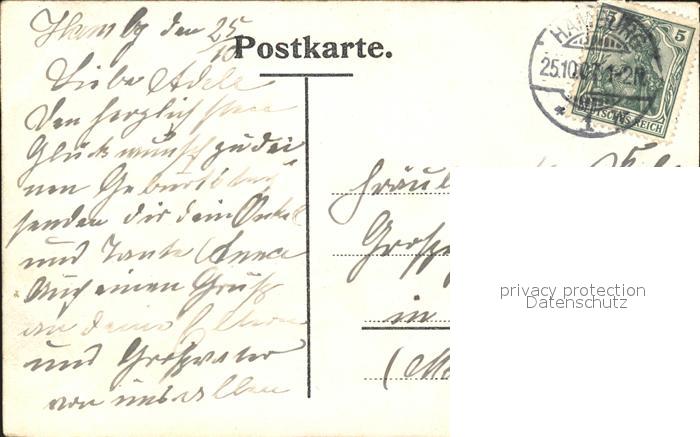 Hambg den 25/10
Postkarte.
Liebe Adele
den herzlichsten
Glückwunsch zu dei
nen Geburtstag
senden dir dein Onkel
und Tante Anna
Auch einen Gruß
an deine Eltern
und Großvater
von uns allen
HAMBURG
25.10.07. 1-2N
* 1
5 5
DEUTSCHES REICH
Fräul
in
privacy protection
Datenschutz